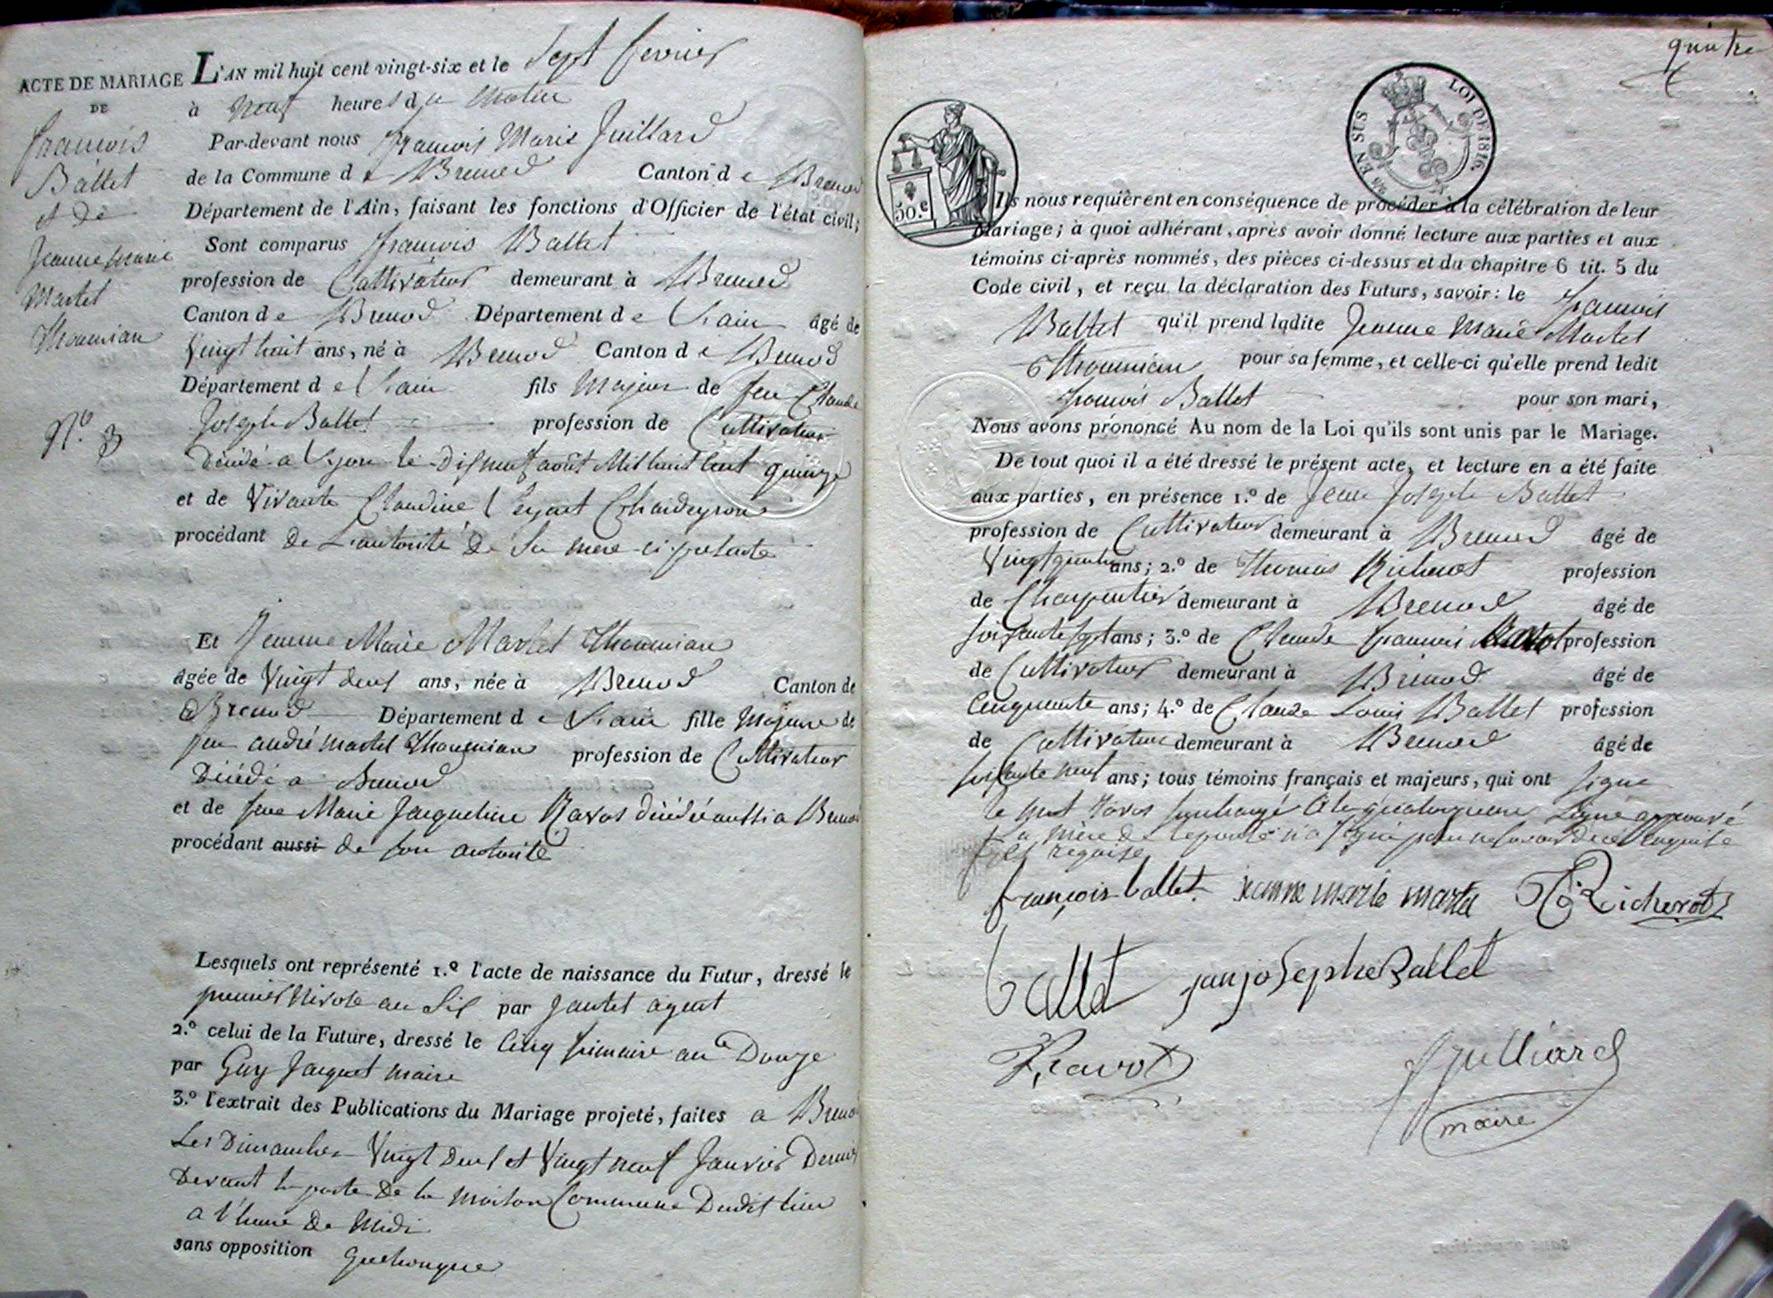 ACTE DE MARIAGE
DE
françois
Ballet
et de
Jeanne Marie
Martel
Thoumian
N.º 3
L'AN mil huit cent vingt-six et le Sept fevrier
à neuf heures du Matin
Par-devant nous françois Marie Juillard
de la Commune de Brenod Canton de Brenod
Département de l'Ain, faisant les fonctions d'Officier de l'état civil;
Sont comparus françois Ballet
profession de Cultivateur demeurant à Brenod
Canton de Brenod Département de L'ain âgé de
Vingt huit ans, né à Brenod Canton de Brenod
Département de L'ain fils Majeur de feu Claude
Joseph Ballet profession de Cultivateur
Décédé a Lyon le Dix neuf août Mil huit Cent quinze
et de Vivante Claudine
procédant de L'autorité de Sa mere ci presente
Et Jeanne Marie Martel Thoumian
âgée de Vingt deux ans, née à Brenod Canton de
Brenod Département de L'ain fille Majeure de
feu andré martel Thoumian profession de Cultivateur
Décédé a Brenod
et de feue Marie Jacqueline Ravot décédée aussi a Brenod
procédant aussi de son autorité
Lesquels ont représenté 1.º l'acte de naissance du Futur, dressé le
premier Nivose an Six par Jantet agent
2.º celui de la Future, dressé le Cinq frimaire an Douze
par Guy Jacquet maire
3.º l'extrait des Publications du Mariage projeté, faites a Brenod
Les Dimanches Vingt deux et Vingt neuf Janvier Dernier
Devant la porte de la maison Commune Dudit lieu
a l'heure de Midi
sans opposition quelconque
quatre
LOI DE 1816.
EN SUS
50.c
Ils nous requièrent en conséquence de procéder à la célébration de leur
Mariage; à quoi adhérant, après avoir donné lecture aux parties et aux
témoins ci-après nommés, des pièces ci-dessus et du chapitre 6 tit. 5 du
Code civil, et reçu la déclaration des Futurs, savoir: le françois
Ballet qu'il prend ladite Jeanne Marie Martel
Thoumian pour sa femme, et celle-ci qu'elle prend ledit
françois Ballet pour son mari,
Nous avons prononcé Au nom de la Loi qu'ils sont unis par le Mariage.
De tout quoi il a été dressé le présent acte, et lecture en a été faite
aux parties, en présence 1.º de Jean Joseph Ballet
profession de Cultivateur demeurant à Brenod âgé de
Vingt quatre ans; 2.º de Thomas Richerot profession
de Charpentier demeurant à Brenod âgé de
soixante sept ans; 3.º de Claude françois Ravot profession
de Cultivateur demeurant à Brenod âgé de
Cinquante ans; 4.º de Claude Louis Ballet profession
de Cultivateur demeurant à Brenod âgé de
soixante neuf ans; tous témoins français et majeurs, qui ont signé
le mot Ravot surchargé a la quatorzieme Ligne approuvé
La mère de l'epoux n'a signé pour ne savoir de ce enquise
et requise
françois ballet jeanne marie martel Th Richerot
ballet jan josephe Ballet
Ravot Julliard
maire